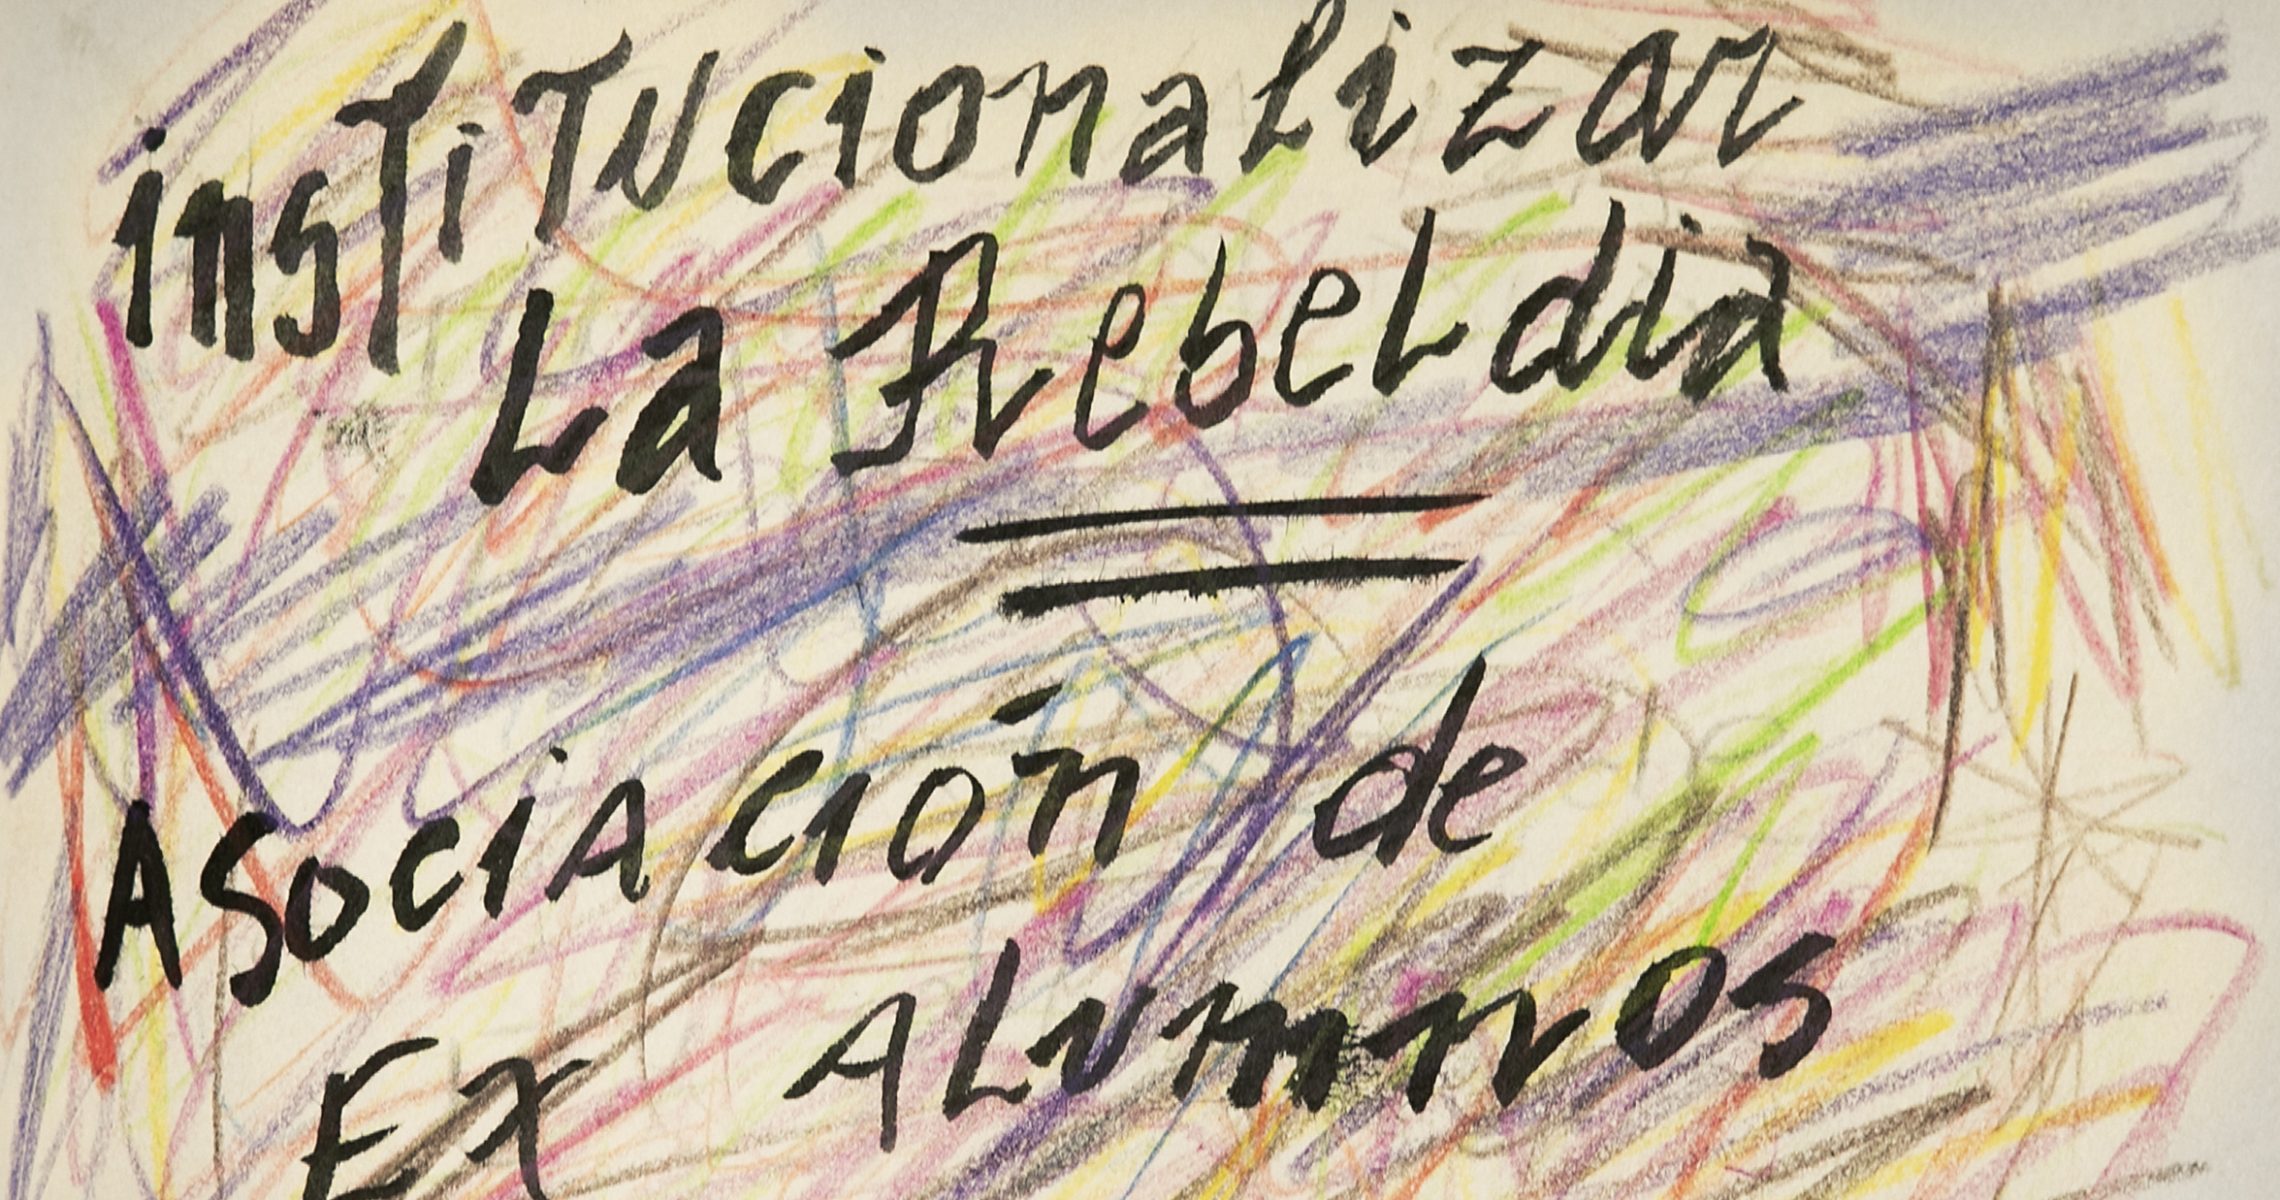 insTiTucionalizar
La Rebeldia
AsociAción de
Ex ALumnos